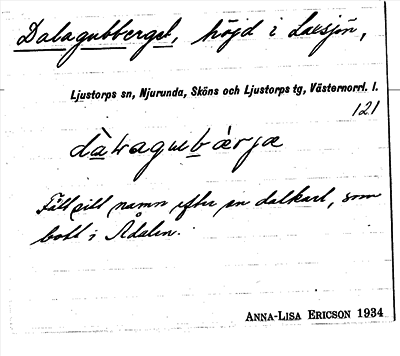 Dalagubberget, höjd i Laxsjön,
Ljustorps sn, Njurunda, Sköns och Ljustorps tg, Västernorrl. l.
121
dàlagubbärjæ
Fått sitt namn efter en dalkarl, som
bott i Ådalen.
ANNA-LISA ERICSON 1934